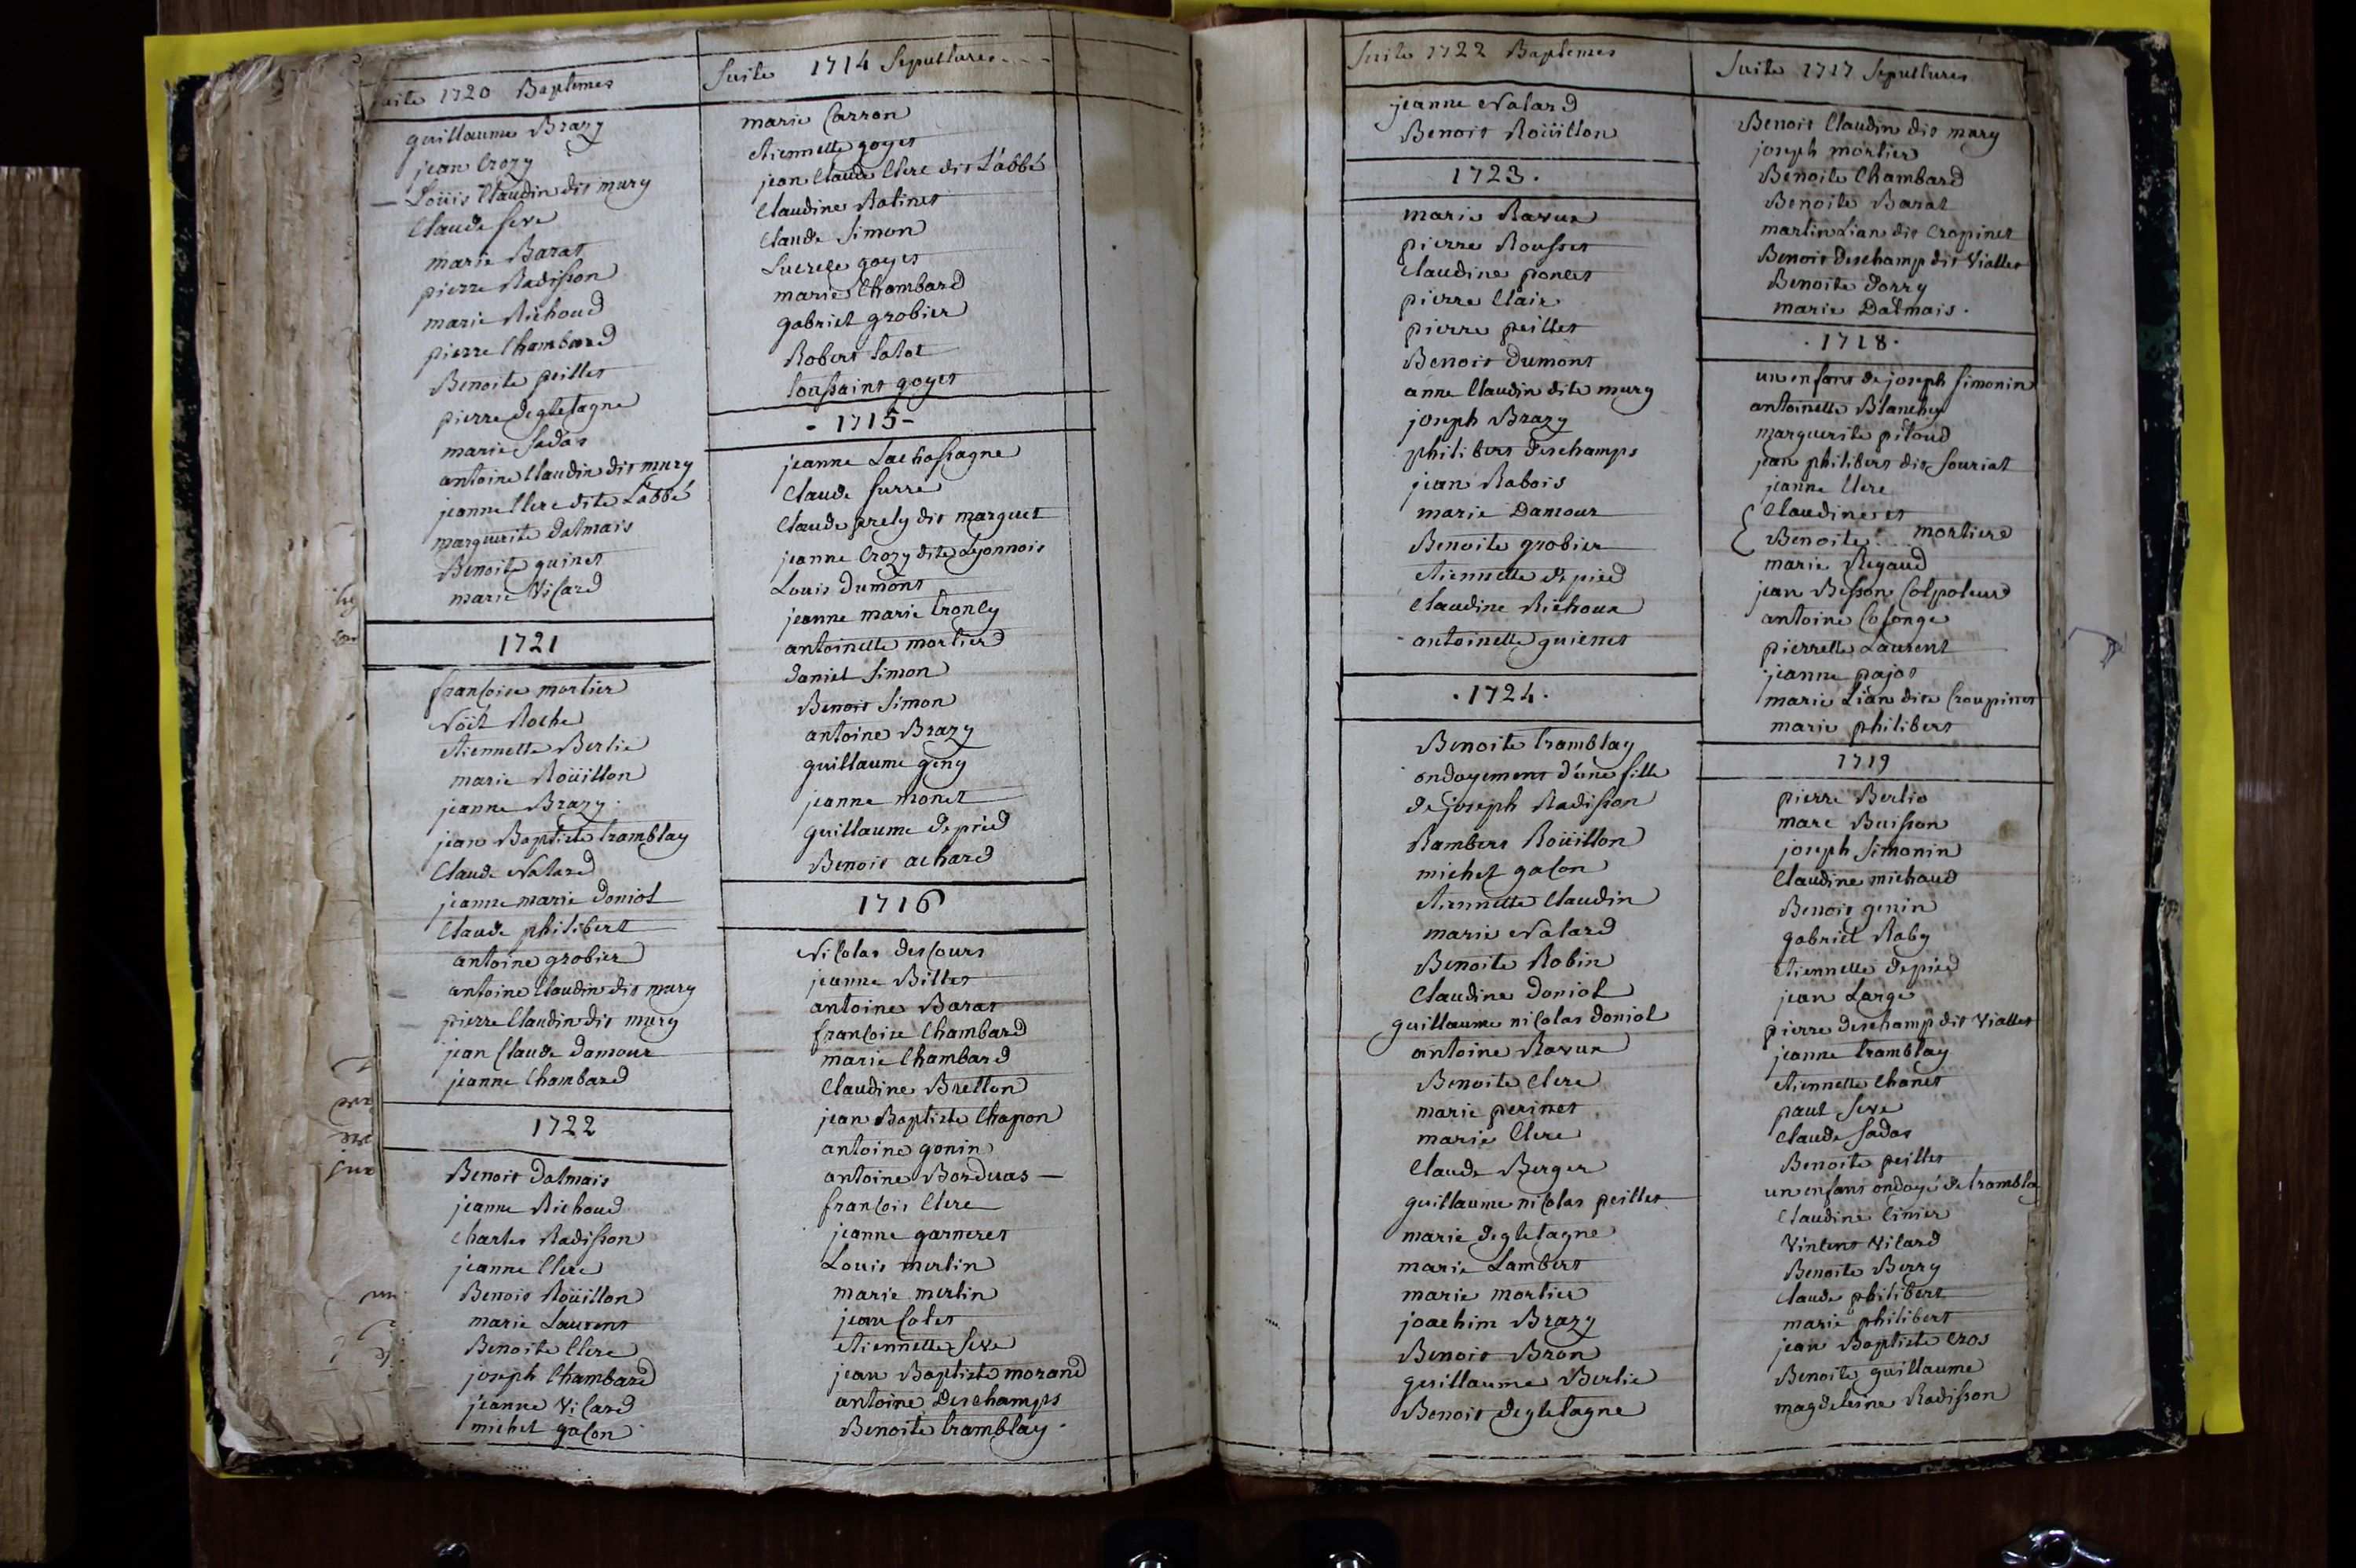 suite 1720 Baptemes
guillaume Brazy
jean Crozy
Loüis Claudin dit mury
Claude seve
marie Barat
pierre Radisson
marie Richoud
pierre Chambard
Benoite peillet
pierre degletagne
marie sadot
antoine Claudin dit mury
jeanne Clere dite L'abbé
marguerite dalmais
Benoite guinet
marie Vicard
1721
francoise mortier
Nöel Roche
etiennette Berlie
marie Roüillon
jeanne Brazy
jean Baptiste tramblay
Claude Nalard
jeanne marie doniol
Claude philibert
antoine grobier
antoine Claudin dit mury
pierre Claudin dit mury
jean Claude damour
jeanne Chambard
1722
Benoit dalmais
jeanne Richoud
Charles Radisson
jeanne Clere
Benoit Roüillon
marie Laurent
Benoite Clere
joseph Chambard
jeanne Vicard
michel gacon
suite 1714 sepultures
marie Carron
etiennette goyet
jean Claude Clere dit L'abbé
Claudine Ratinet
Claude simon
Lucrece goyet
marie Chambard
gabriel grobier
Robert
toussaint goyet
- 1715 -
jeanne Lachassagne
Claude surre
Claude prely dit marguet
jeanne Crozy dite Lyonnois
Louis dumont
jeanne marie troncy
antoinette mortier
daniel simon
Benoit simon
antoine Brazy
guillaume geny
jeanne monet
guillaume depied
Benoit achard
1716
Nicolas descours
jeanne Billet
antoine Barat
francoise Chambard
marie Chambard
Claudine Bretton
jean Baptiste Chapon
antoine gonin
antoine Borduas
francois Clere
jeanne garneret
Louis merlin
marie merlin
jean Colet
etiennette seve
jean Baptiste morand
antoine Deschamps
Benoite tramblay
suite 1722 Baptemes
jeanne Nalard
Benoit Roüillon
1723.
marie Ravux
pierre Rousset
Claudine poncet
pierre Clair
pierre peillet
Benoit dumont
anne Claudin dite mury
joseph Brazy
philibert deschamps
jean Rabois
marie Damour
Benoite grobier
etiennette depied
Claudine Richoux
antoinette guienet
.1724.
Benoite tramblay
ondoyement d'une fille
de joseph Radisson
Rambert Roüillon
michel gacon
etiennette Claudin
marie Nalard
Benoite Robin
Claudine doniol
guillaume nicolas doniol
antoine Ravux
Benoite Clere
marie perinet
marie Clere
Claude Berger
guillaume nicolas peillet
marie degletagne
marie Lambert
marie mortier
joachim Brazy
Benoit Bron
guillaume Berlie
Benoit degletagne
suite 1717 sepultures
Benoit Claudin dit mury
joseph mortier
Benoite Chambard
Benoite Barat
martin Lian dit Cropinet
Benoit deschamp dit Viallet
Benoite dorry
marie Dalmais.
.1718.
un enfant de joseph simonin
antoinette Blanchey
marguerite pitoud
jean philibert dit souriat
jeanne Clere
Claudine et
Benoite ... mortiere
marie Regaud
jean Besson Colpoteur
antoine Colonge
pierrette Laurent
jeanne pajot
marie Lian dite Croupinet
marie philibert
1719
pierre Berlio
marc Buisson
joseph simonin
Claudine michaud
Benoit genin
gabriel Raby
etiennette depied
jean Large
pierre deschamp dit Viallet
jeanne tramblay
etiennette Chanet
paul seve
Claude sadot
Benoite peillet
un enfant ondoyé de trambla
Claudine
Vincent Vicard
Benoite Berry
Claude philibert
marie philibert
jean Baptiste Cros
Benoite guillaume
magdeleine Radisson